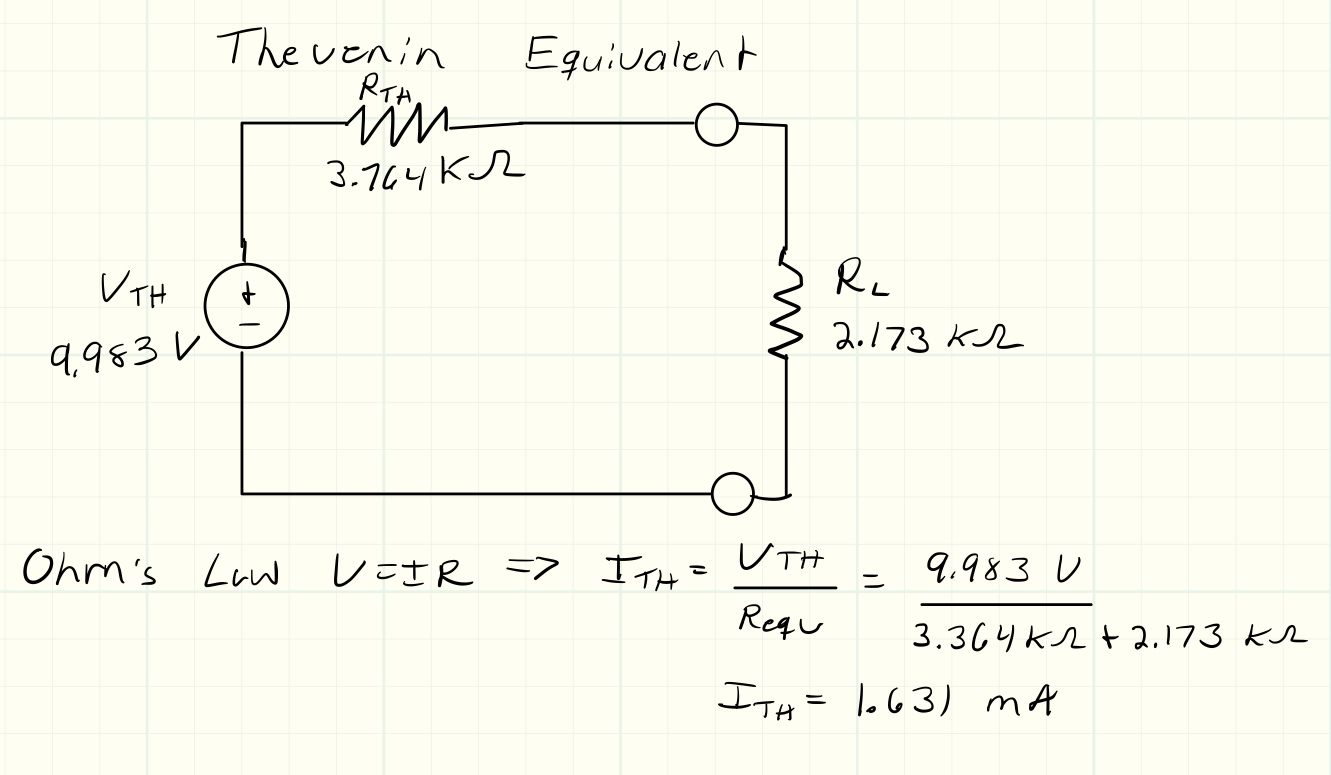 Thevenin Equivalent
R_TH
3.764 KΩ
V_TH
9.983 V
+
−
R_L
2.173 kΩ
Ohm's Law V=IR => I_TH = V_TH / Requ = 9.983 V / 3.364 kΩ + 2.173 kΩ
I_TH = 1.631 mA